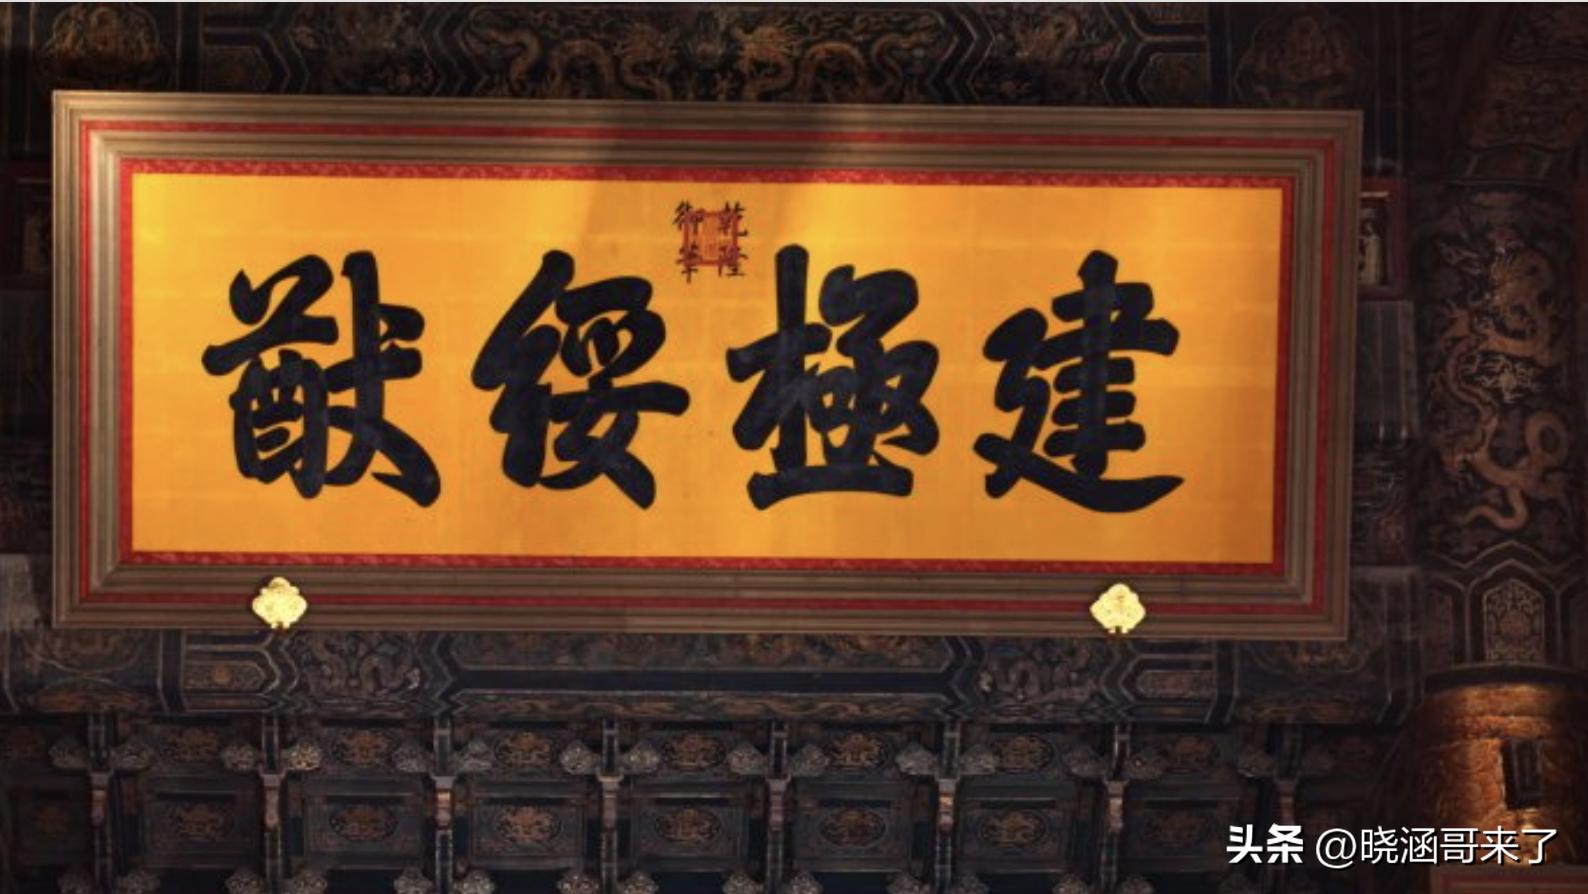 建極綏猷
乾隆
御筆
头条 @晓涵哥来了